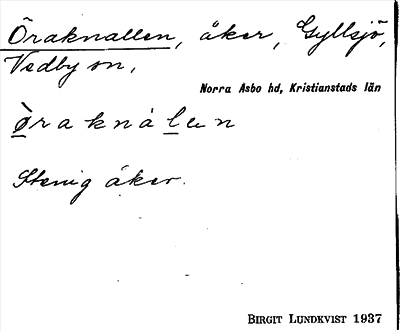 Öraknallen, åker, Gyllsjö,
Vedby sn,
Norra Asbo hd, Kristianstads län
ø̀raknàl̲en
Stenig åker.
BIRGIT LUNDKVIST 1937